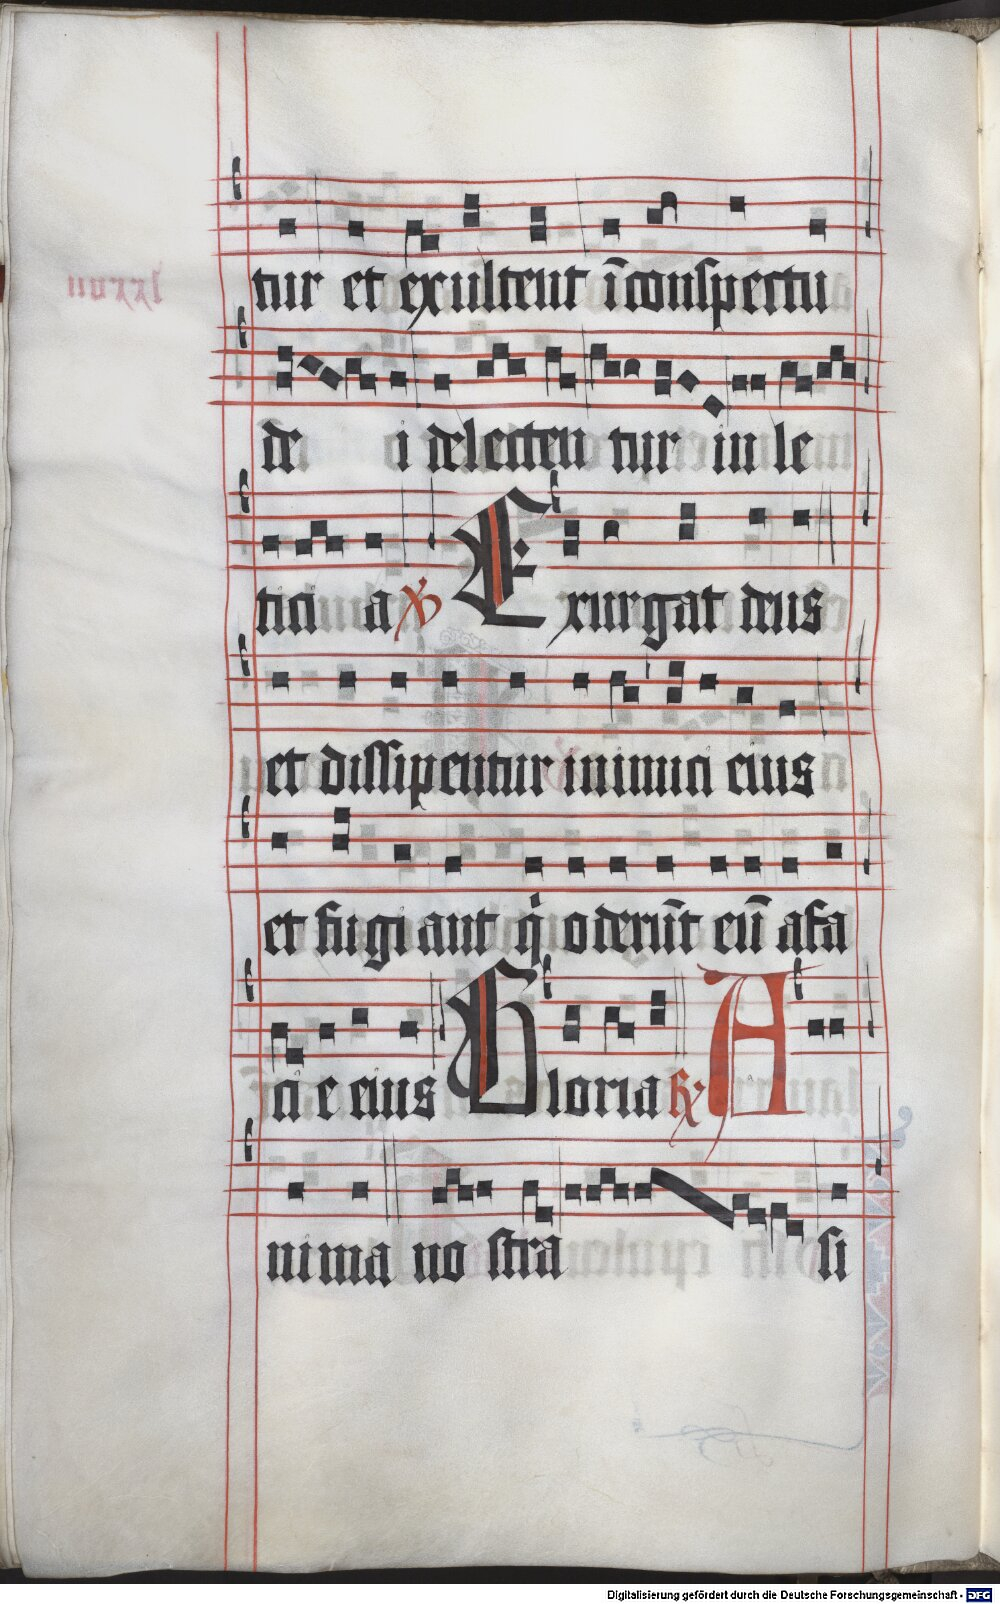 tur et exultent īconspectu
de i delecten tur in le
tici a ℣ Exurgat deus
et dissipentur inimici eius
et fugi ant q̇ oderūt eū afa
ci e eius Gloria ℟ A
nima no stra si
Digitalisierung gefördert durch die Deutsche Forschungsgemeinschaft - DFG